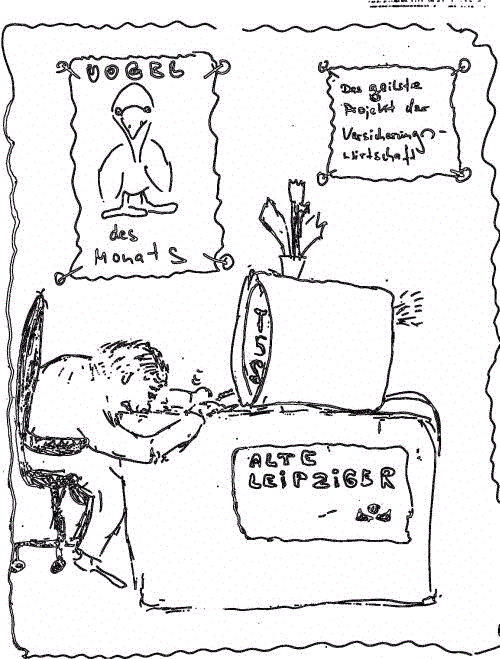 VOGEL
des
Monats
Das geilste
Projekt der
Versicherungs-
wirtschaft
TSO
ALTE
LEiPZiGER